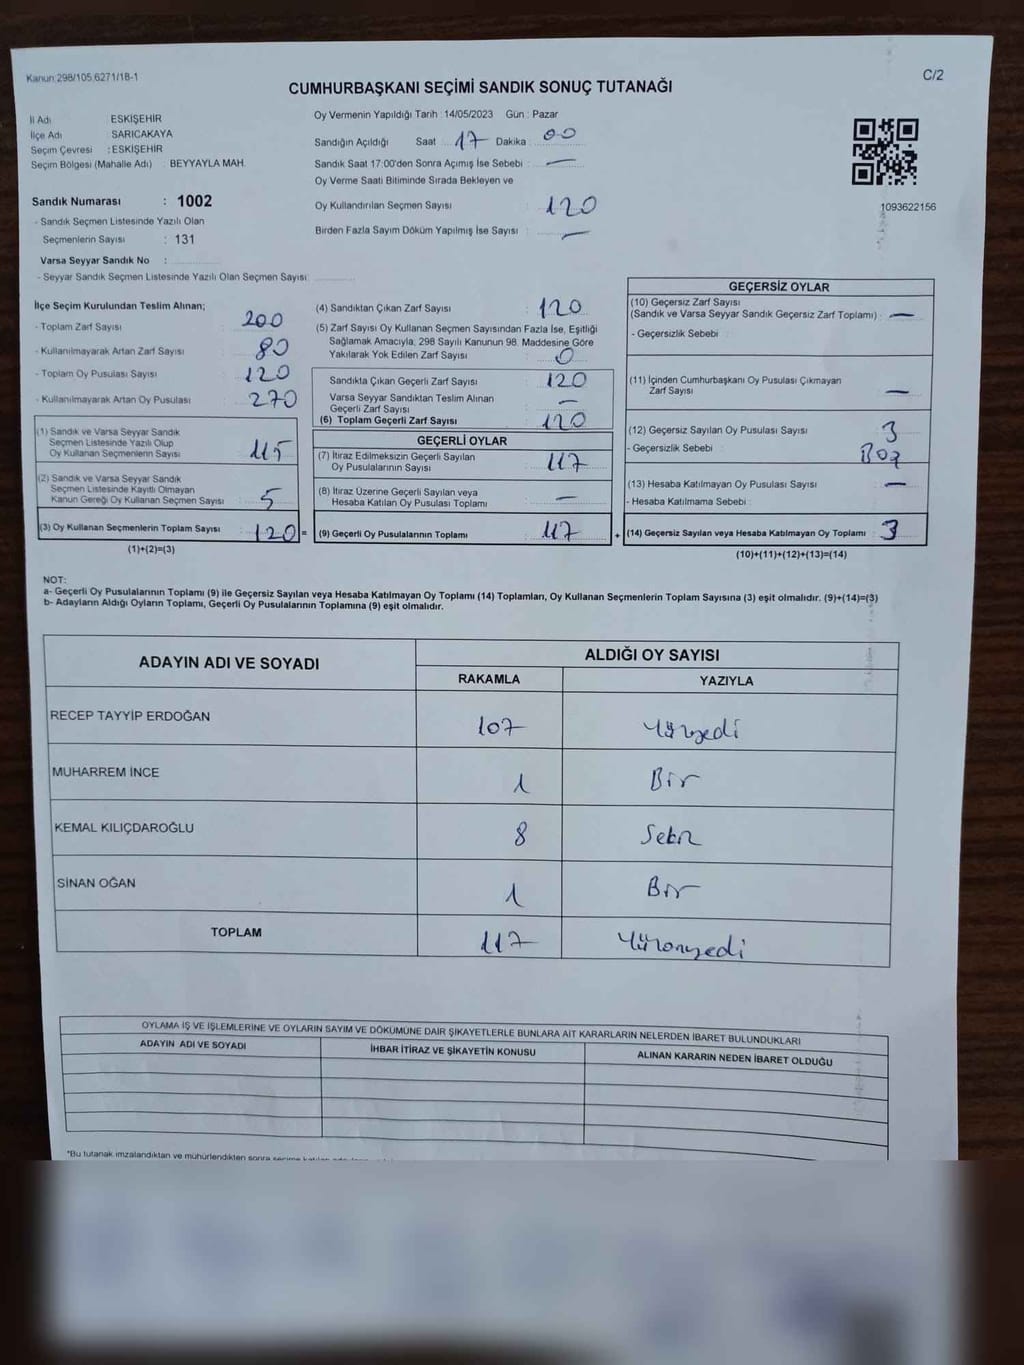 Kanun:298/105,6271/18-1
C/2
CUMHURBAŞKANI SEÇİMİ SANDIK SONUÇ TUTANAĞI
İl Adı ESKİŞEHİR
İlçe Adı : SARICAKAYA
Seçim Çevresi : ESKİŞEHİR
Seçim Bölgesi (Mahalle Adı) : BEYYAYLA MAH.
Sandık Numarası : 1002
- Sandık Seçmen Listesinde Yazılı Olan
Seçmenlerin Sayısı : 131
Varsa Seyyar Sandık No :
- Seyyar Sandık Seçmen Listesinde Yazılı Olan Seçmen Sayısı:
Oy Vermenin Yapıldığı Tarih : 14/05/2023 Gün : Pazar
Sandığın Açıldığı Saat 17 Dakika 00
Sandık Saat 17:00'den Sonra Açımış İse Sebebi : —
Oy Verme Saati Bitiminde Sırada Bekleyen ve
Oy Kullandırılan Seçmen Sayısı : 120
Birden Fazla Sayım Döküm Yapılmış İse Sayısı : —
1093622156
İlçe Seçim Kurulundan Teslim Alınan;
- Toplam Zarf Sayısı : 200
- Kullanılmayarak Artan Zarf Sayısı : 80
- Toplam Oy Pusulası Sayısı : 120
- Kullanılmayarak Artan Oy Pusulası : 270
(1) Sandık ve Varsa Seyyar Sandık
Seçmen Listesinde Yazılı Olup
Oy Kullanan Seçmenlerin Sayısı : 115
(2) Sandık ve Varsa Seyyar Sandık
Seçmen Listesinde Kayıtlı Olmayan
Kanun Gereği Oy Kullanan Seçmen Sayısı : 5
(3) Oy Kullanan Seçmenlerin Toplam Sayısı : 120 =
(1)+(2)=(3)
(4) Sandıktan Çıkan Zarf Sayısı : 120
(5) Zarf Sayısı Oy Kullanan Seçmen Sayısından Fazla İse, Eşitliği
Sağlamak Amacıyla, 298 Sayılı Kanunun 98. Maddesine Göre
Yakılarak Yok Edilen Zarf Sayısı : 0
Sandıkta Çıkan Geçerli Zarf Sayısı : 120
Varsa Seyyar Sandıktan Teslim Alınan
Geçerli Zarf Sayısı : —
(6) Toplam Geçerli Zarf Sayısı : 120
GEÇERLİ OYLAR
(7) İtiraz Edilmeksizin Geçerli Sayılan
Oy Pusulalarının Sayısı : 117
(8) İtiraz Üzerine Geçerli Sayılan veya
Hesaba Katılan Oy Pusulası Toplamı : —
(9) Geçerli Oy Pusulalarının Toplamı : 117 +
GEÇERSİZ OYLAR
(10) Geçersiz Zarf Sayısı
(Sandık ve Varsa Seyyar Sandık Geçersiz Zarf Toplamı) : —
- Geçersizlik Sebebi :
(11) İçinden Cumhurbaşkanı Oy Pusulası Çıkmayan
Zarf Sayısı : —
(12) Geçersiz Sayılan Oy Pusulası Sayısı : 3
- Geçersizlik Sebebi : Boş
(13) Hesaba Katılmayan Oy Pusulası Sayısı : —
- Hesaba Katılmama Sebebi :
(14) Geçersiz Sayılan veya Hesaba Katılmayan Oy Toplamı : 3
(10)+(11)+(12)+(13)=(14)
NOT:
a- Geçerli Oy Pusulalarının Toplamı (9) ile Geçersiz Sayılan veya Hesaba Katılmayan Oy Toplamı (14) Toplamları, Oy Kullanan Seçmenlerin Toplam Sayısına (3) eşit olmalıdır. (9)+(14)=(3)
b- Adayların Aldığı Oyların Toplamı, Geçerli Oy Pusulalarının Toplamına (9) eşit olmalıdır.
ADAYIN ADI VE SOYADI ALDIĞI OY SAYISI
RAKAMLA YAZIYLA
RECEP TAYYİP ERDOĞAN 107 Yüzyedi
MUHARREM İNCE 1 Bir
KEMAL KILIÇDAROĞLU 8 Sekiz
SİNAN OĞAN 1 Bir
TOPLAM 117 Yüzonyedi
OYLAMA İŞ VE İŞLEMLERİNE VE OYLARIN SAYIM VE DÖKÜMÜNE DAİR ŞİKAYETLERLE BUNLARA AİT KARARLARIN NELERDEN İBARET BULUNDUKLARI
ADAYIN ADI VE SOYADI İHBAR İTİRAZ VE ŞİKAYETİN KONUSU ALINAN KARARIN NEDEN İBARET OLDUĞU
*Bu tutanak imzalandıktan ve mühürlendikten sonra